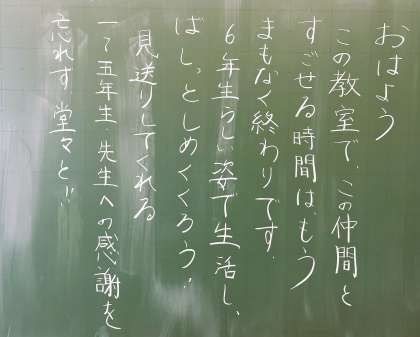 おはよう
この教室で、この仲間と
すごせる時間は、もう
まもなく終わりです。
6年生らしい姿で生活し、
ばしっとしめくくろう!
見送りしてくれる
一〜五年生、先生への感謝を
忘れず堂々と!!